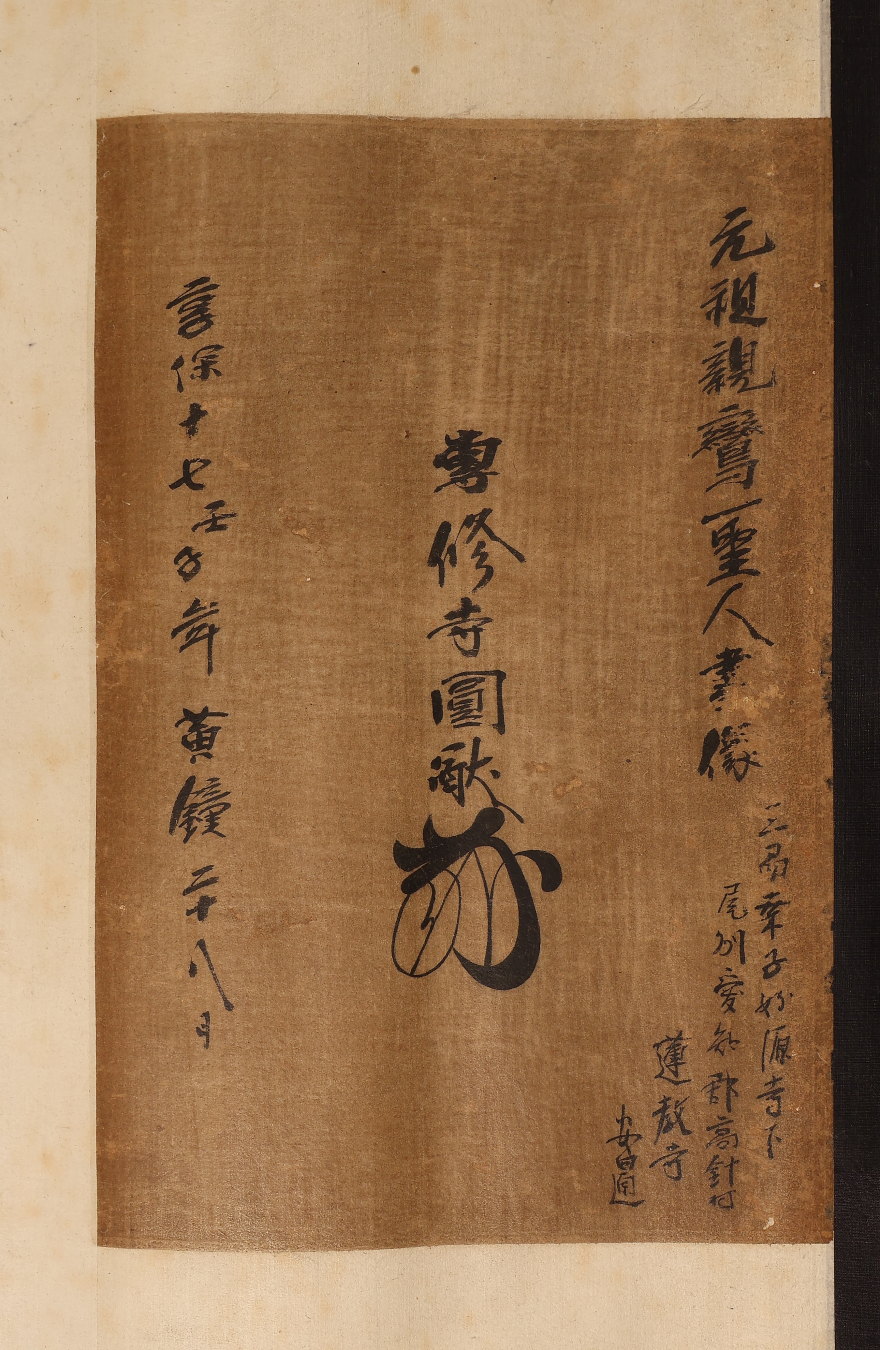 元祖親鸞聖人畫像
三州桒子妙源寺下
尾州愛知郡高針村
蓮教寺
專修寺圓猷
享保十七壬子年黄鐘二十八日